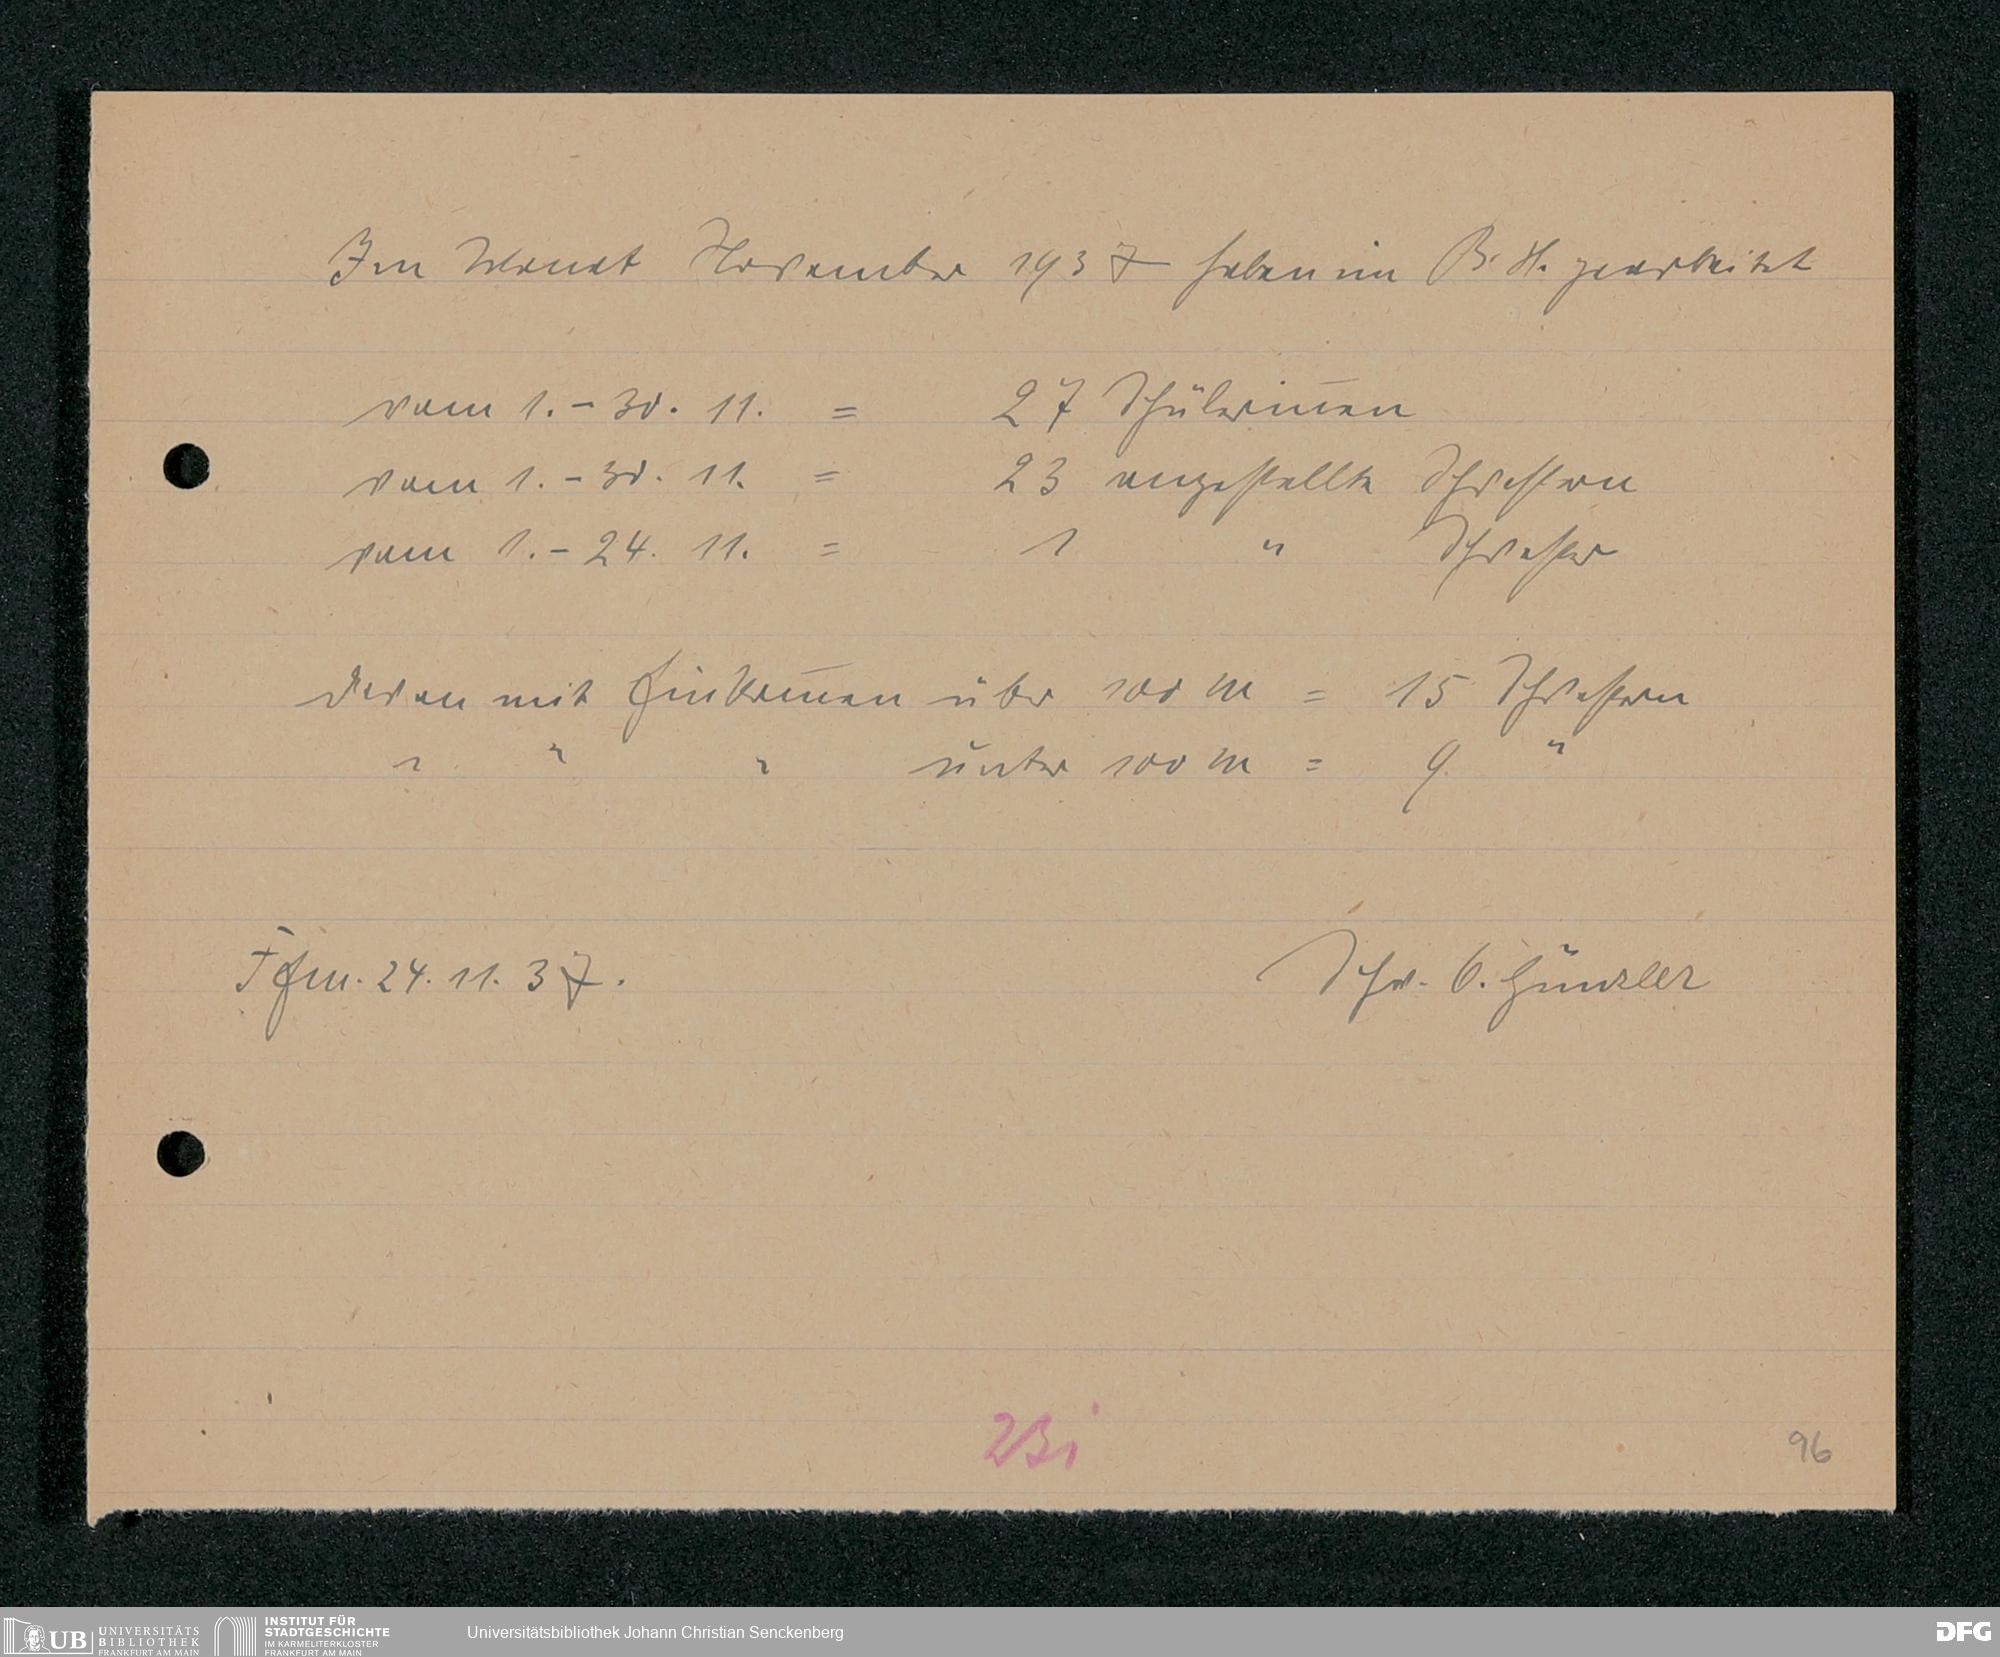 Im Monat November 1937 haben im B. H. gearbeitet
vom 1. - 30. 11. = 27 Schülerinnen
vom 1. - 30. 11. = 23 angestellte Schwestern
vom 1. - 24. 11. = 1 " Schwester
davon mit Einkommen über 100 M = 15 Schwestern
" " " unter 100 M = 9 "
Ffm. 24. 11. 37. Schw. O.
96
UB UNIVERSITÄTS
BIBLIOTHEK
FRANKFURT AM MAIN
INSTITUT FÜR
STADTGESCHICHTE
IM KARMELITERKLOSTER
FRANKFURT AM MAIN
Universitätsbibliothek Johann Christian Senckenberg
DFG